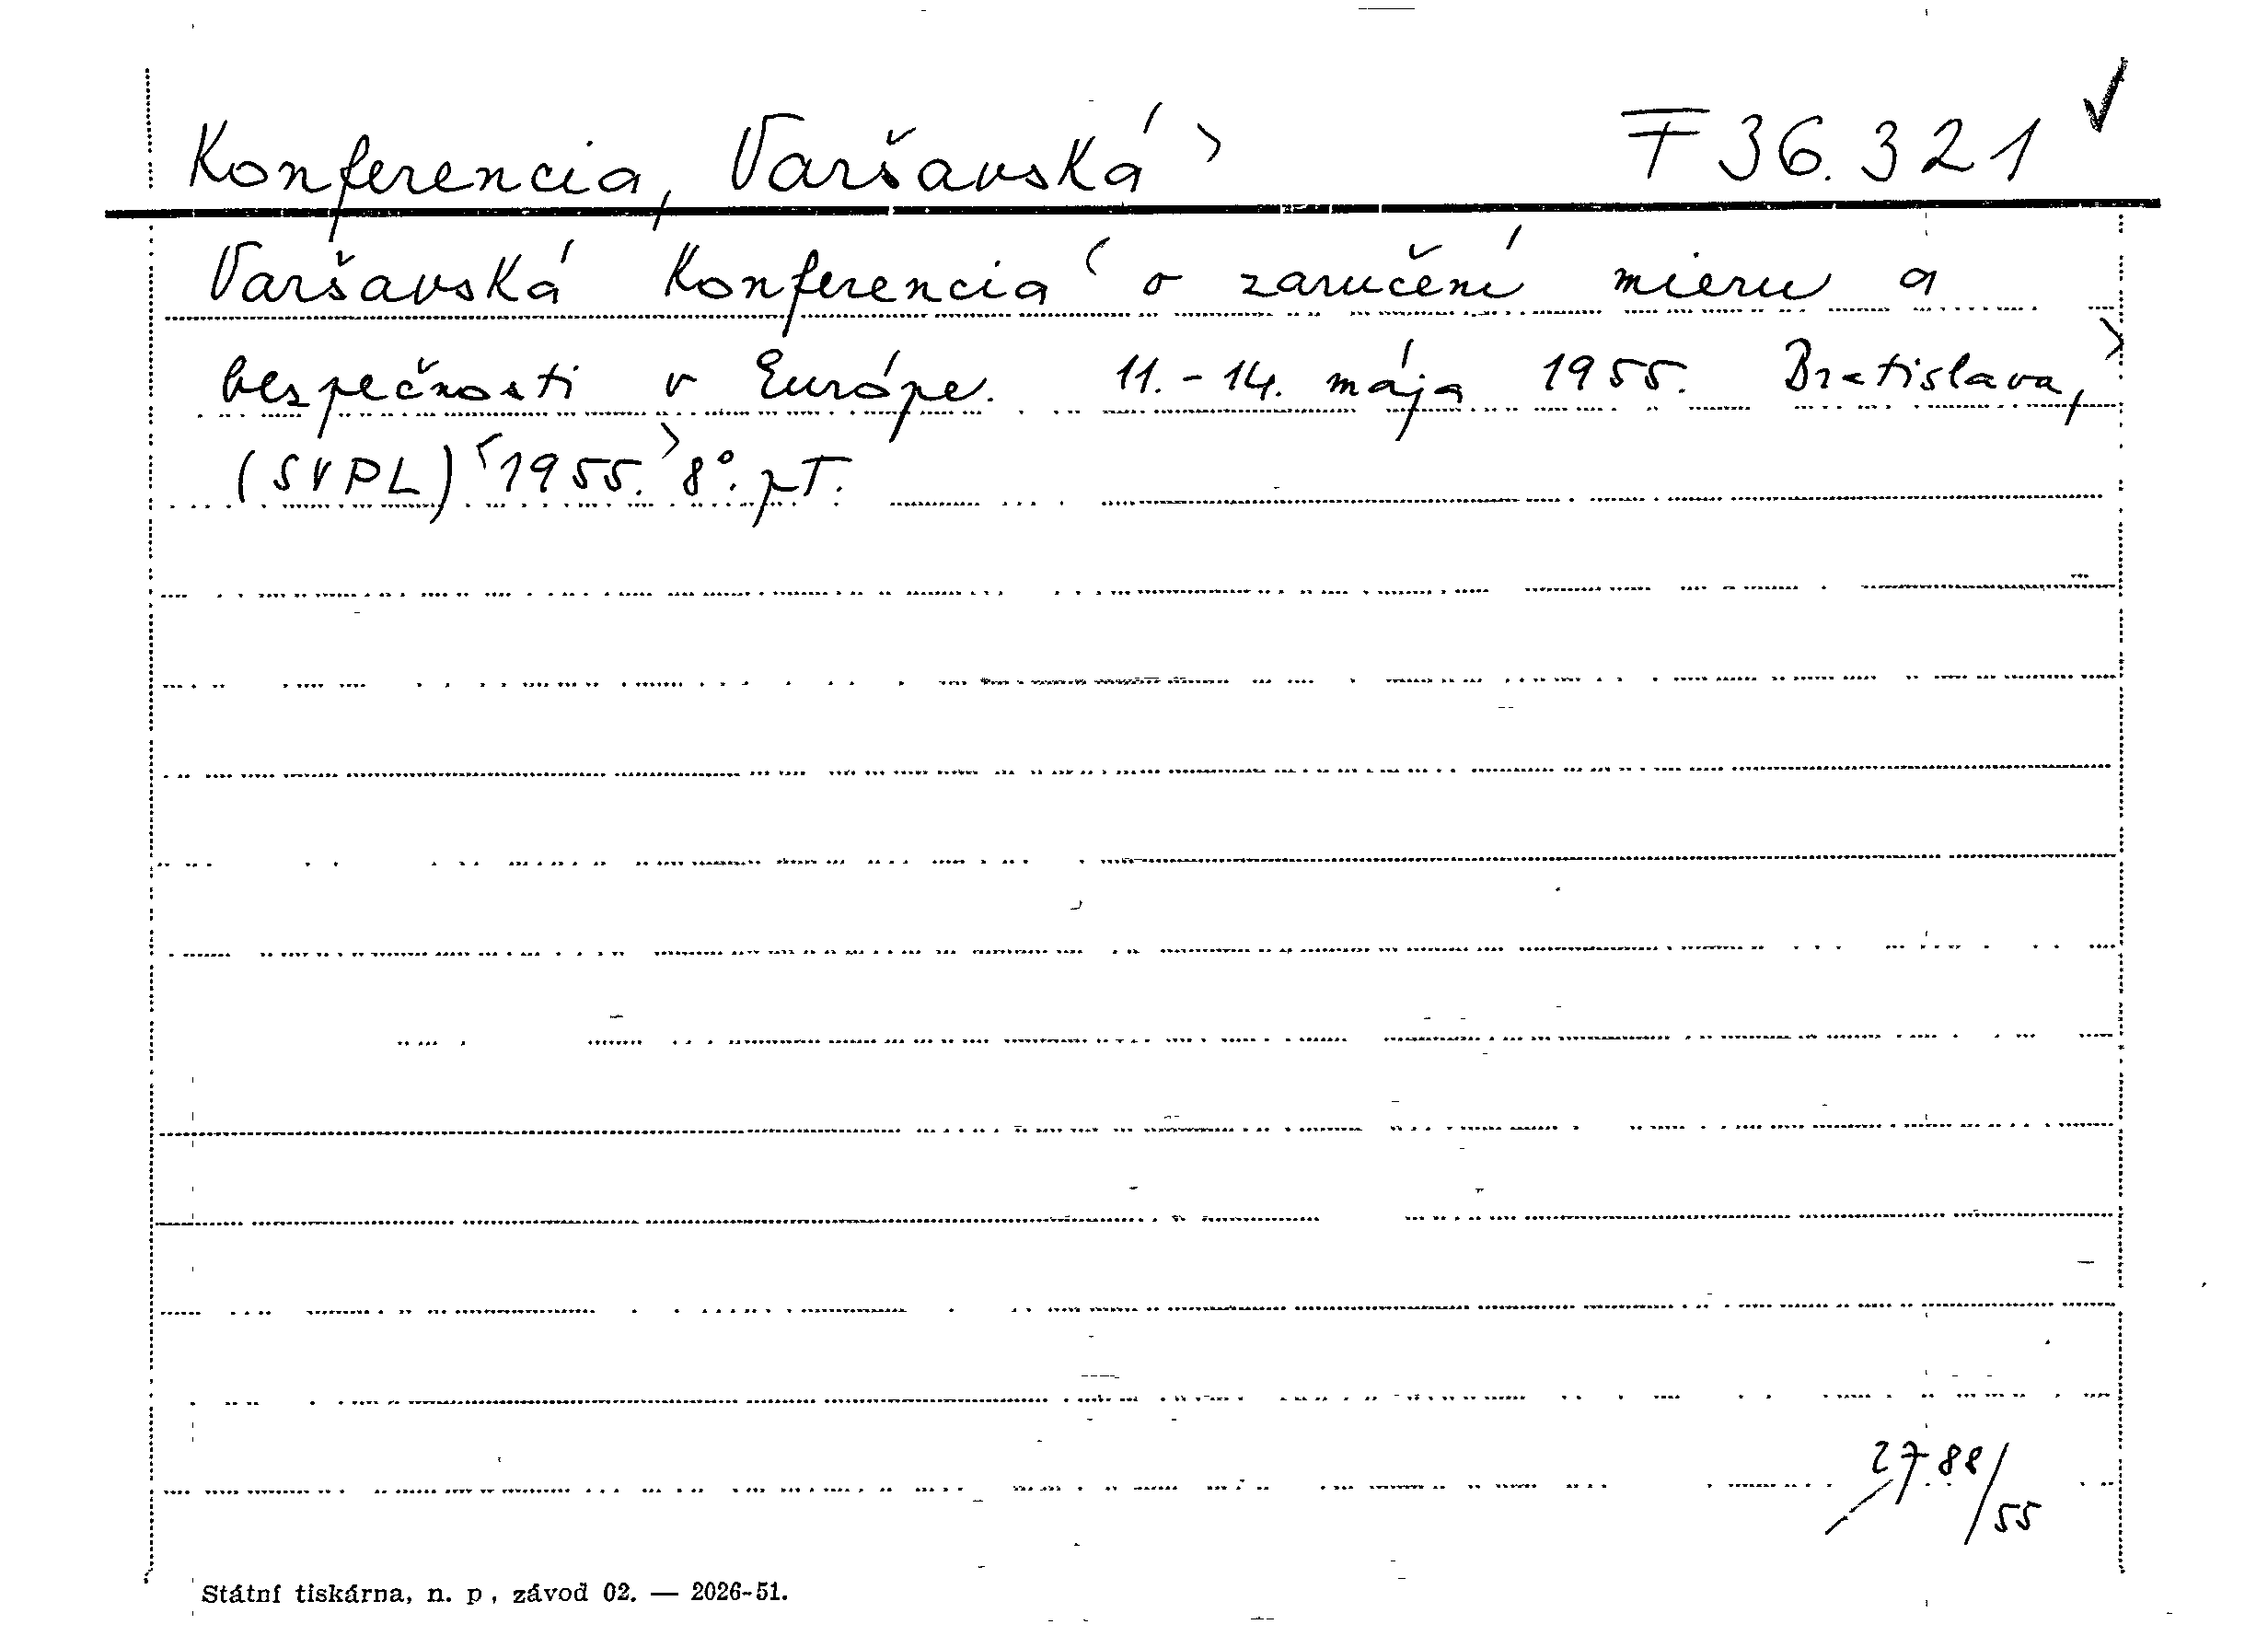 Konferencia, Varšavská > F 36.321 ✓
Varšavská Konferencia < o zaručení mieru a
bezpečnosti v Európe. 11.-14. mája 1955. Bratislava, >
(SVPL) <1955.> 8°. pT.
2788/55
Státní tiskárna, n. p., závod 02. — 2026-51.